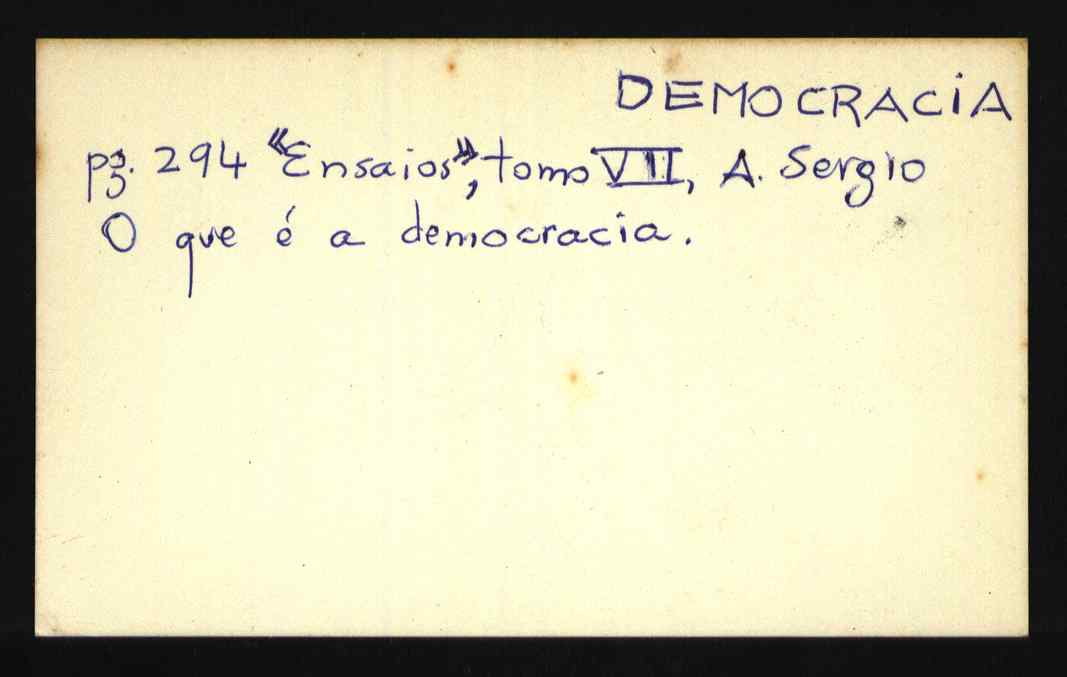 DEMOCRACiA
pg. 294 «Ensaios», tomo VII, A. Sergio
O que é a democracia.